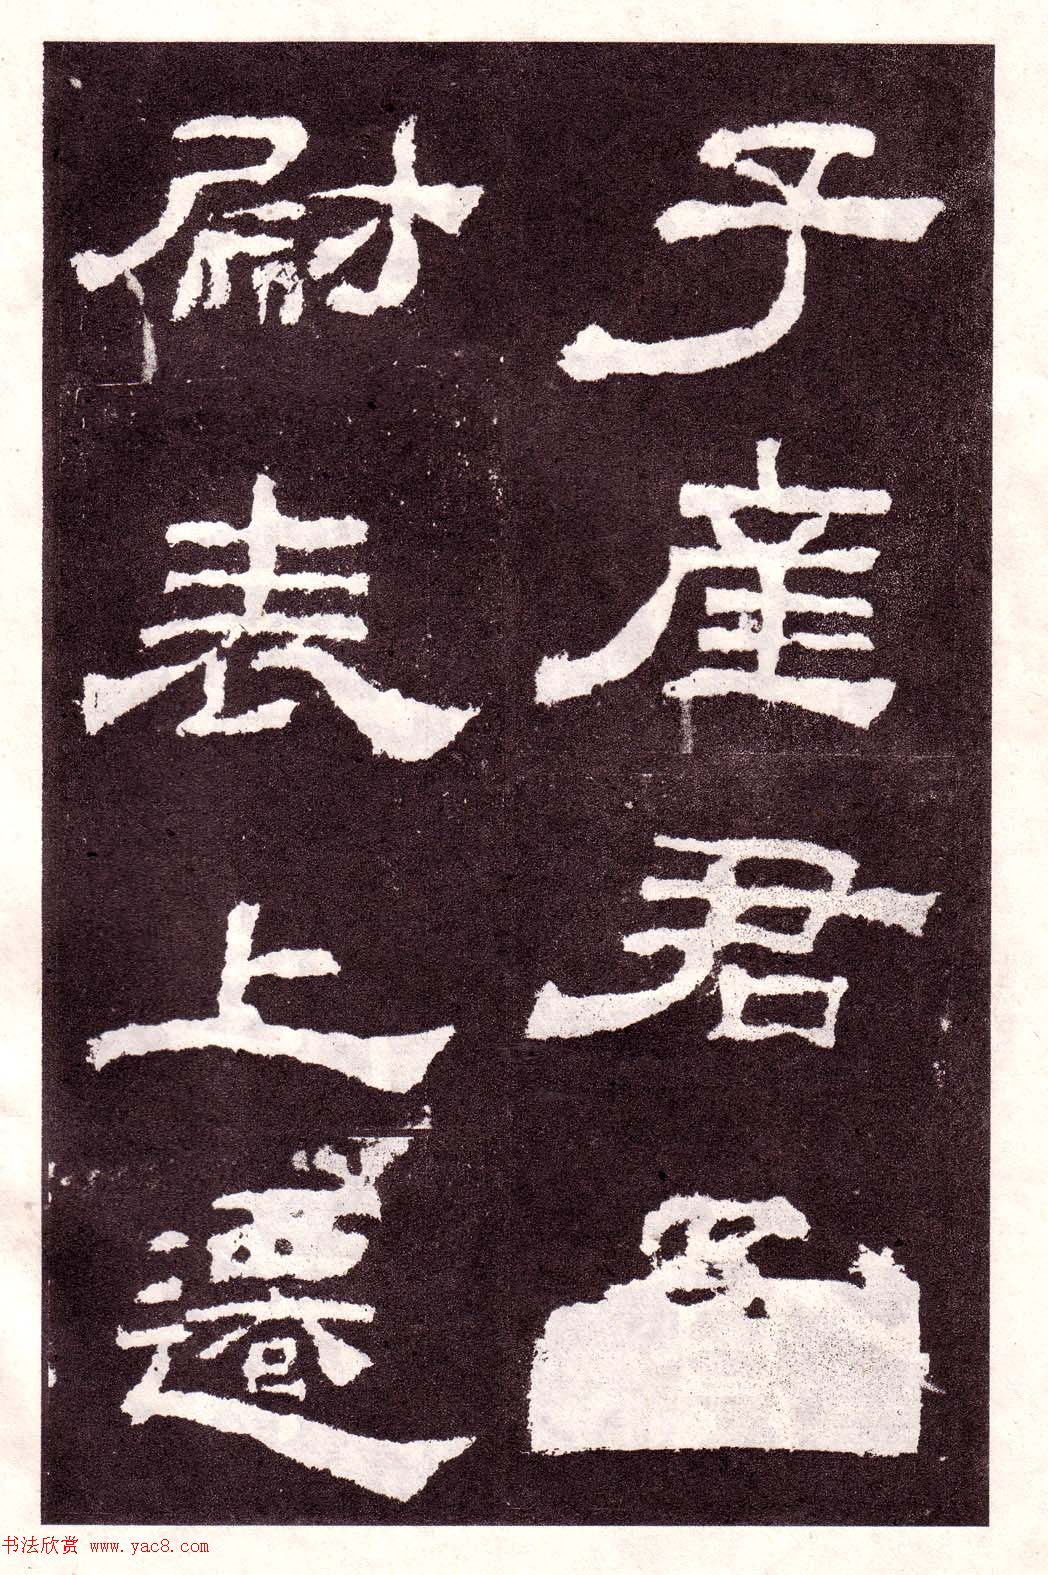 子産君
尉表上遷
书法欣赏 www.yac8.com